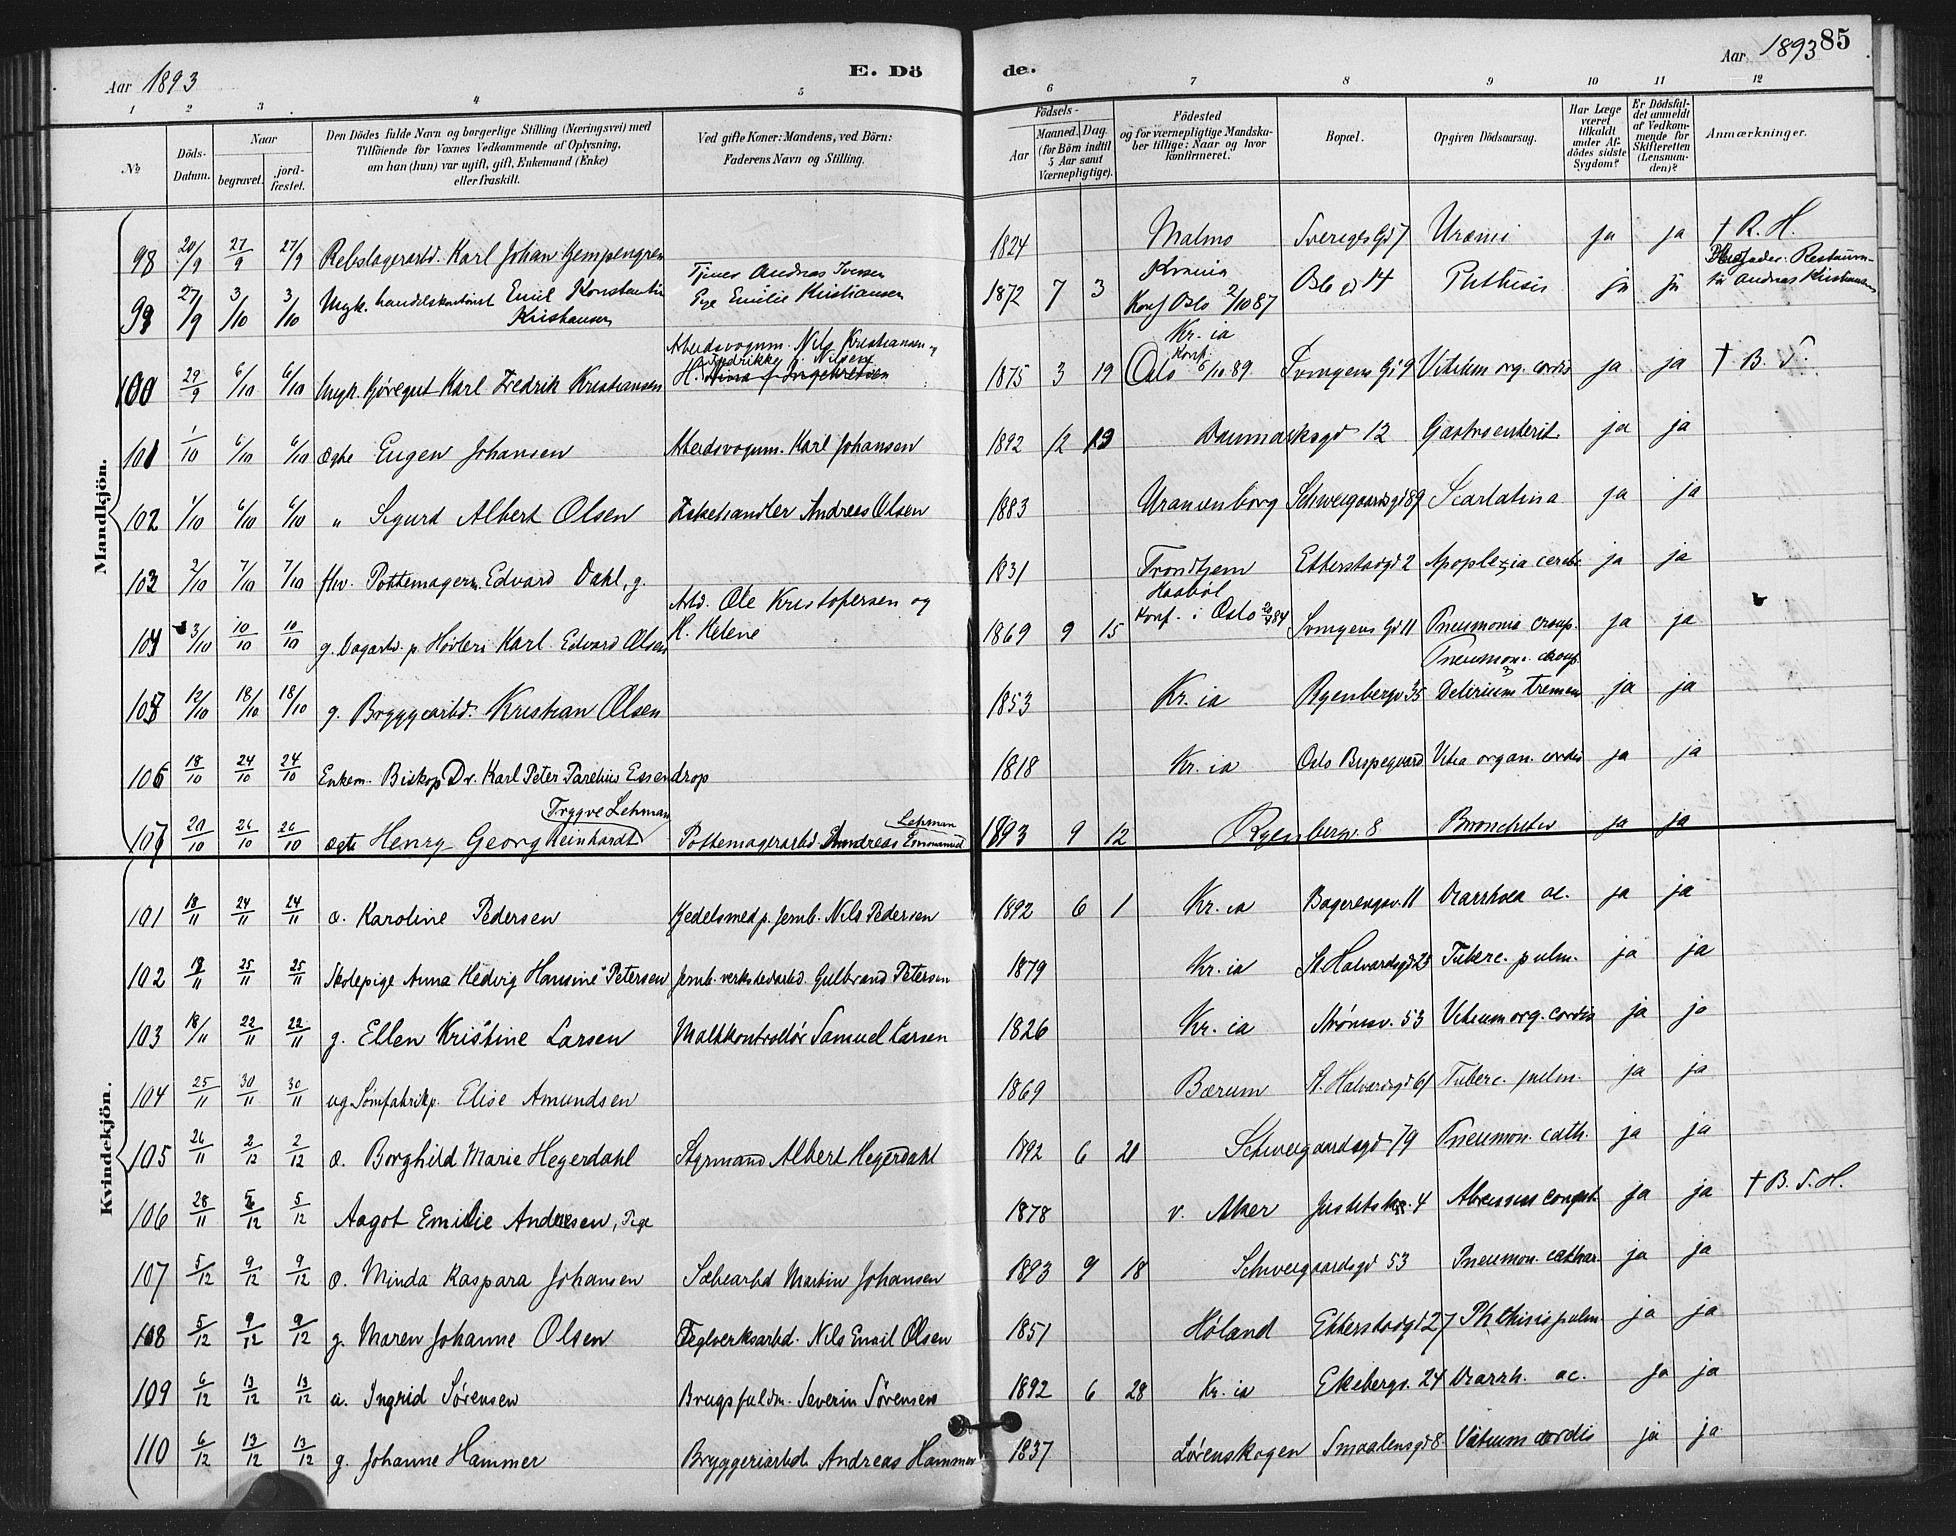 Aar 1893
E. Dö de.
Aar 1893 85
1 2 3 4 5 6 7 8 9 10 11 12
No
Döds-Datum.
Naar
begravet.
jordfæstet.
Den Dödes fulde Navn og borgerlige Stilling (Næringsvei) med
Tilföiende for Voxnes Vedkommende af Oplysning,
om han (hun) var ugift, gift, Enkemand (Enke)
eller fraskilt.
Ved gifte Koner: Mandens, ved Börn:
Faderens Navn og Stilling.
Födsels-
Aar
Maaned. Dag.
(for Börn indtil
5 Aar samt
Værnepligtige).
Födested
og for værnepligtige Mandska-
ber tillige: Naar og hvor
konfirmeret.
Bopæl.
Opgiven Dödsaarsag.
Har Læge
været
tilkaldt
under Af-
dödes sidste
Sygdom?
Er Dödsfal-
det anmeldt
af Vedkom-
mende for
Skifteretten
(Lensman-
den)?
Anmærkninger.
Mandkjön.
98 20/9 27/9 27/9 Rebslagerarbd. Karl Johan Gempengren 1824 Malmo Sverigesgd 7 Uræmi ja ja † R. H.
99 27/9 3/10 3/10 Ungk. handelskontorist Emil Konstantin Kristiansen Tjener Andreas Iversen Pige Emilie Kristiansen 1872 7 3 Kr.ania Konf Oslo 2/10 87 Oslo gd 14 Phthisis ja ja Plejefader: Restauratør Andreas Kristiansen
100 29/9 6/10 6/10 Ungk. Gjøregut Karl Fredrik Kristiansen Arbeidsvognm. Nils Kristiansen og H. Fredrikke f. Nilsen 1875 3 19 Kr. ia Oslo Konf. 6/10 89 Svingens Gd 9 Vitium org. cordis ja ja † B. S.
101 1/10 6/10 6/10 ægte Eugen Johansen Arbeidsvognm. Karl Johansen 1892 12 13 Danmarksgd 12 Gastroenterit ja ja
102 1/10 6/10 6/10 " Sigurd Albert Olsen Fiskehandler Andreas Olsen 1883 Uranienborg Schweigaardsgd 89 Scarlatina ja ja
103 2/10 7/10 7/10 fhv. Pottemagerm. Edvard Dahl, g. 1831 Trondhjem Etterstadgd 2 Apoplexia cerebr. ja ja
104 3/10 10/10 10/10 g. Dagarbd. p. Høvleri Karl Edvard Olsen Arbd. Ole Kristofersen og H. Helene 1869 9 15 Haabøl Konf. i Oslo 84 Svingens Gd 11 Pneumonia croup. ja ja
105 12/10 18/10 18/10 g. Bryggearbd. Kristian Olsen 1853 Kr. ia Ryenbergv 35 Pneumoni croup. Delirium tremens ja ja
106 18/10 24/10 24/10 Enkem. Biskop Dr. Karl Peter Parelius Essendrop 1818 Kr. ia Oslo Bispegaard Vitia organ. cordis ja ja
107 20/10 26/10 26/10 ægte Henry Georg Reinhardt Trygve Lehman Pottemagerarbd. Andreas Emmanuel Lehman 1893 9 12 Ryenbergv. 8 Bronchitis ja ja
Kvindekjön.
101 18/11 24/11 24/11 æ. Karoline Pedersen Gjedelsmed p. Jernb. Nils Pedersen 1892 6 1 Kr. ia Bagerengsv. 11 Diarrhoea ac. ja ja
102 18/11 25/11 25/11 Skolepige Anna Hedvig Hansine Petersen Jernb. verkstedarbd. Gulbrand Petersen 1879 Kr. ia St. Halvardsgd 25 Tuberc. pulm. ja ja
103 18/11 22/11 22/11 g. Ellen Kristine Larsen Maltkontrollør Samuel Larsen 1826 Kr. ia Strømsv. 53 Vitium org. cordis ja ja
104 25/11 30/11 30/11 ug Sømfabrikp. Elise Amundsen 1869 Bærum St. Halvardsgd 61 Tuberc. pulm. ja ja
105 26/11 2/12 2/12 æ. Borghild Marie Hegerdahl Styrmand Albert Hegerdahl 1892 6 20 Schweigaardsgd 79 Pneumon. cath. ja ja
106 28/11 5/12 5/12 Aagot Emilie Andersen, Pige 1878 v. Aker Justitsk. 4 Abcessus congest. ja ja † B. S. H.
107 5/12 9/12 9/12 æ. Minda Kaspara Johansen Sæbearbd Martin Johansen 1893 9 18 Schweigaardsgd 53 Pneumon. cathar. ja ja
108 5/12 9/12 9/12 g. Maren Johanne Olsen Teglverksarbd. Nils Emil Olsen 1851 Høland Etterstadgd 27 Phthisis pulm ja ja
109 6/12 13/12 13/12 æ. Ingrid Sørensen Brugsfuldm. Severin Sørensen 1892 6 28 Kr. ia Ekebergv. 24 Diarrh. ac. ja ja
110 6/12 13/12 13/12 g. Johanne Hammer Bryggeriarbd. Andreas Hammer 1837 Lørenskogen Smaalensgd 8 Vitium cordis ja ja